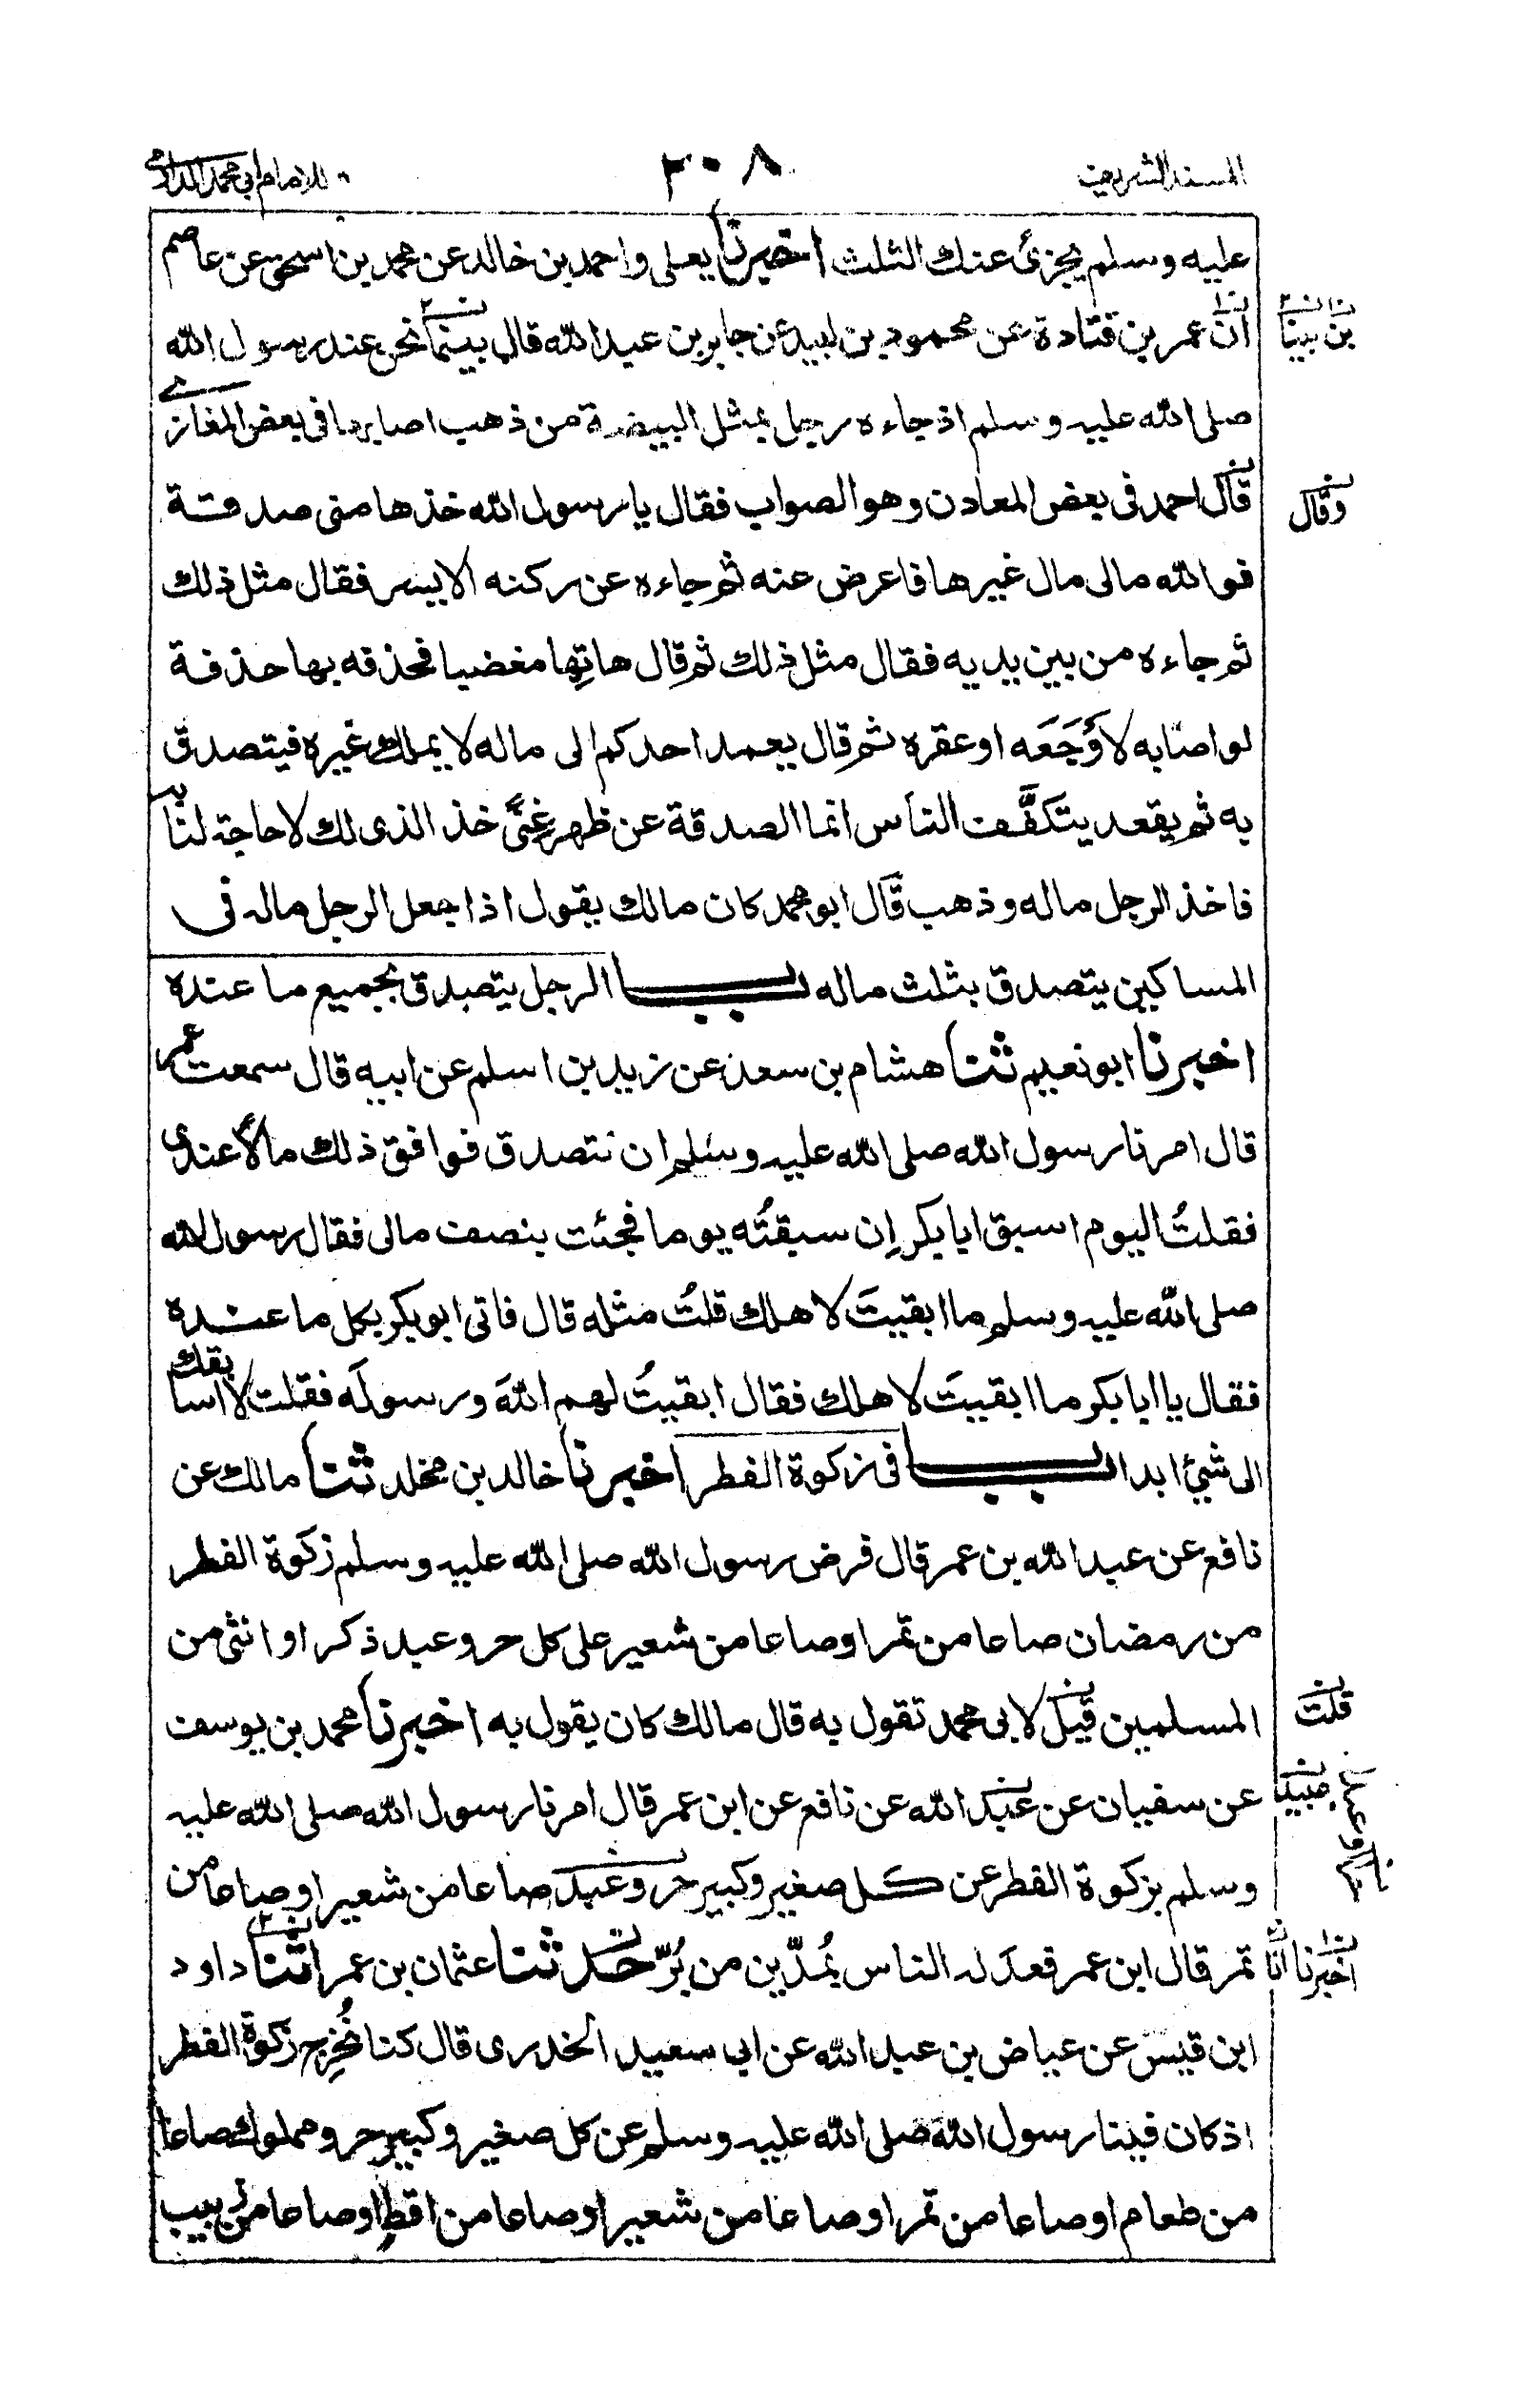 المسند الشريف ٢٠٨ للامام ابي محمد الدارمي
عليه وسلم يجزئ عنك الثلث اخبرنا يعلى واحمد بن خالد عن محمد بن اسحق عن عاصم
ان عمر بن قتادة عن محمود بن لبيد عن جابر بن عبد الله قال بينما نحن عند رسول الله
بن بينا
صلى الله عليه وسلم اذ جاءه رجل بمثل البيضة من ذهب اصابها فى بعض المغازى
قال احمد فى بعض المعادن وهو الصواب فقال يا رسول الله خذها منى صدقة
وقال
فوالله مالى مال غيرها فاعرض عنه ثم جاءه عن ركنه الايسر فقال مثل ذلك
ثم جاءه من بين يديه فقال مثل ذلك ثم قال هاتِها مغضبا فحذفه بها حذفة
لو اصابه لاَوْجَعَه او عقره ثم قال يعمد احدكم الى ماله لا يملك غيره فيتصدق
به ثم يقعد يتكفَّف الناس انما الصدقة عن ظهر غِنًى خذ الذى لك لا حاجة لنا به
فاخذ الرجل ماله وذهب قال ابو محمد كان مالك يقول اذا جعل الرجل ماله فى
المساكين يتصدق بثلث ماله باب الرجل يتصدق بجميع ما عنده
اخبرنا ابو نعيم ثنا هشام بن سعد عن زيد بن اسلم عن ابيه قال سمعت عمر
قال امرنا رسول الله صلى الله عليه وسلم ان نتصدق فوافق ذلك مالًا عندى
فقلتُ اليوم اسبق ابا بكر اِن سبقتُه يوما فجئت بنصف مالى فقال رسول الله
صلى الله عليه وسلم ما ابقيتَ لاهلك قلتُ مثله قال فاتى ابو بكر بكل ما عنده
فقال يا ابا بكر ما ابقيتَ لاهلك فقال ابقيتُ لهم اللهَ ورسولَه فقلت لا اسابقك
الى شيئ ابدا باب فى زكوة الفطر اخبرنا خالد بن مخلد ثنا مالك عن
نافع عن عبد الله بن عمر قال فرض رسول الله صلى الله عليه وسلم زكوة الفطر
من رمضان صاعا من تمر او صاعا من شعير على كل حر وعبد ذكر او انثى من
المسلمين قيل لابى محمد تقول به قال مالك كان يقول به اخبرنا محمد بن يوسف
قلت
عن سفيان عن عبد الله عن نافع عن ابن عمر قال امرنا رسول الله صلى الله عليه
عبيد
وسلم بزكوة الفطر عن كل صغير وكبير حر وعبد صاعا من شعير او صاعا من
تمر قال ابن عمر فعدَله الناس بمُدّين من بُرّ حدثنا عثمان بن عمر انا داود
اخبرنا انا
ابن قيس عن عياض بن عبد الله عن ابى سعيد الخدرى قال كنا نُخرِج زكوة الفطر
اذ كان فينا رسول الله صلى الله عليه وسلم عن كل صغير وكبير حر ومملوك صاعا
من طعام او صاعا من تمر او صاعا من شعير او صاعا من اقطٍ او صاعا من زبيب